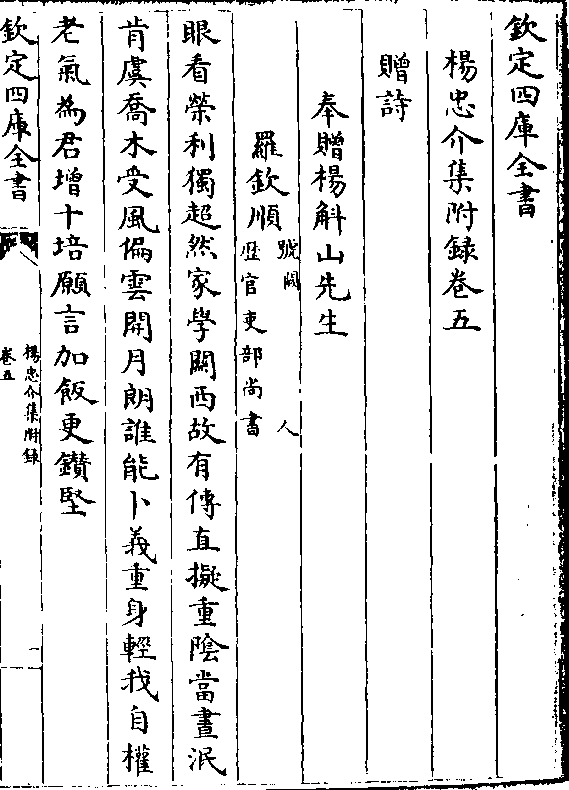 欽定四庫全書
楊忠介集附録卷五
贈詩
奉贈楊斛山先生
羅欽順號闕　人
歴官吏部尚書
眼看榮利獨超然家學闗西故有傳直擬重陰當晝泯
肯虞喬木受風偏雲開月朗誰能卜義重身輕我自權
老氣為君增十培願言加飯更鑽堅
欽定四庫全書
楊忠介集附録
卷五
一